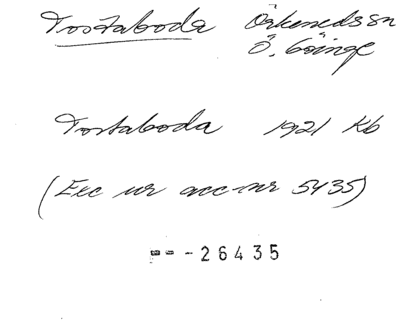 Tostaboda Örkeneds sn
Ö. Göinge
Tostaboda 1921 Kb
(Exc ur acc nr 5435)
--- 26435